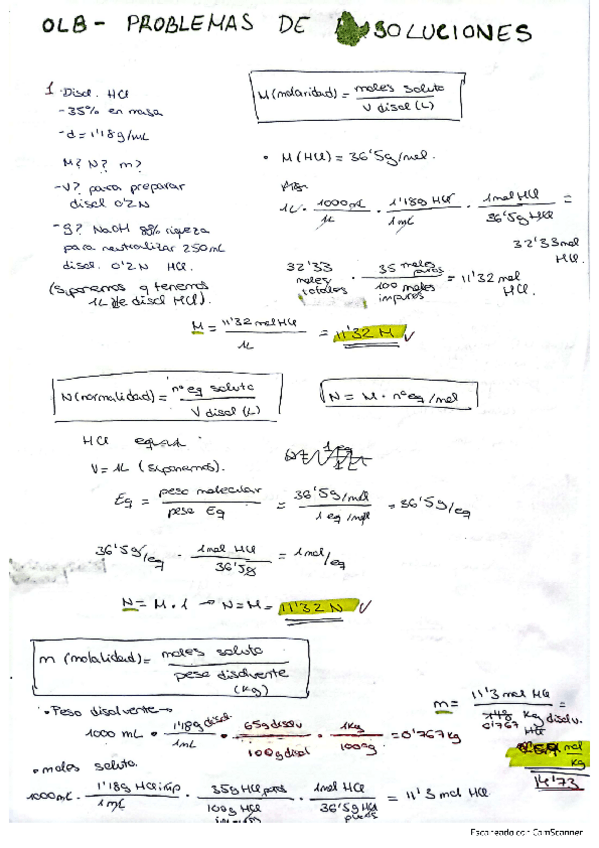 OLB - PROBLEMAS DE SOLUCIONES
1. Disol. HCl
- 35% en masa
- d = 1'18g/mL
M? N? m?
- V? para preparar
disol 0'2N
- g? NaOH riqueza
para neutralizar 250mL
disol. 0'2N HCl.
(suponemos q tenemos
1L de disol HCl).
M (molaridad) = moles soluto / V disol (L)
• M (HCl) = 36'5g/mol.
1L · 1000mL / 1L · 1'18g HCl / 1mL · 1mol HCl / 36'5g HCl = 32'33mol HCl.
32'33 moles totales · 35 moles puros / 100 moles impuros = 11'32 mol HCl.
M = 11'32 mol HCl / 1L = 11'32 M √
N (normalidad) = nº eq soluto / V disol (L)
N = M · nº eq/mol
HCl
V = 1L (suponemos).
Eq = peso molecular / peso Eq = 36'5g/mol / 1 eq/mol = 36'5g/eq
36'5g/eq · 1mol HCl / 36'5g = 1mol/eq
N = M · 1 → N = M = 11'32 N √
m (molalidad) = moles soluto / peso disolvente (kg)
• Peso disolvente →
1000 mL · 1'18g disol / 1mL · 65g disolv / 100g disol · 1kg / 1000g = 0'767 kg
• moles soluto.
1000mL · 1'18g HCl imp / 1mL · 35g HCl puros / 100g HCl · 1mol HCl / 36'5g HCl puros = 11'3 mol HCl
m = 11'3 mol HCl / 0'767 kg disolv. = 14'73 mol/kg
Escaneado con CamScanner